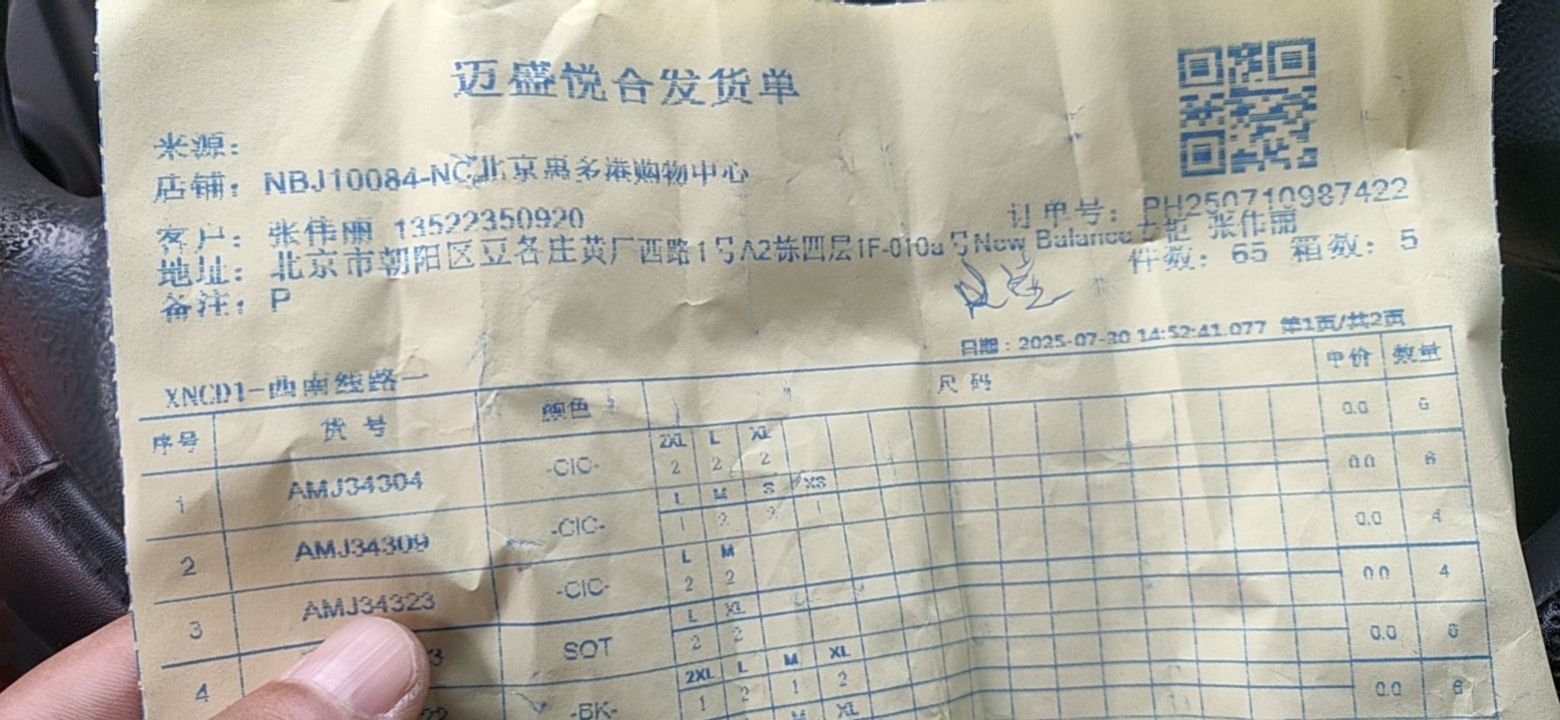 迈盛悦合发货单
来源：
店铺：NBJ10084-NC北京惠多港购物中心
客户：张伟丽 13522350920
订单号：PH250710987422
地址：北京市朝阳区豆各庄黄厂西路1号A2栋四层1F-010a号New Balance专柜 张伟丽
件数：65 箱数：5
备注：P
日期：2025-07-30 14:52:41.077 第1页/共2页
XNCD1-西南线路一
序号 货号 颜色 尺码 单价 数量
2XL L XL
1 AMJ34304 -CIC- 2 2 2 0.0 6
L M S XS
2 AMJ34309 -CIC- 1 2 2 1 0.0 6
L M
3 AMJ34323 -CIC- 2 2 0.0 4
L XL
4 3 SOT 2 2 0.0 4
2XL L M XL
-BK- 1 2 1 2 0.0 6
M XL
0.0 6